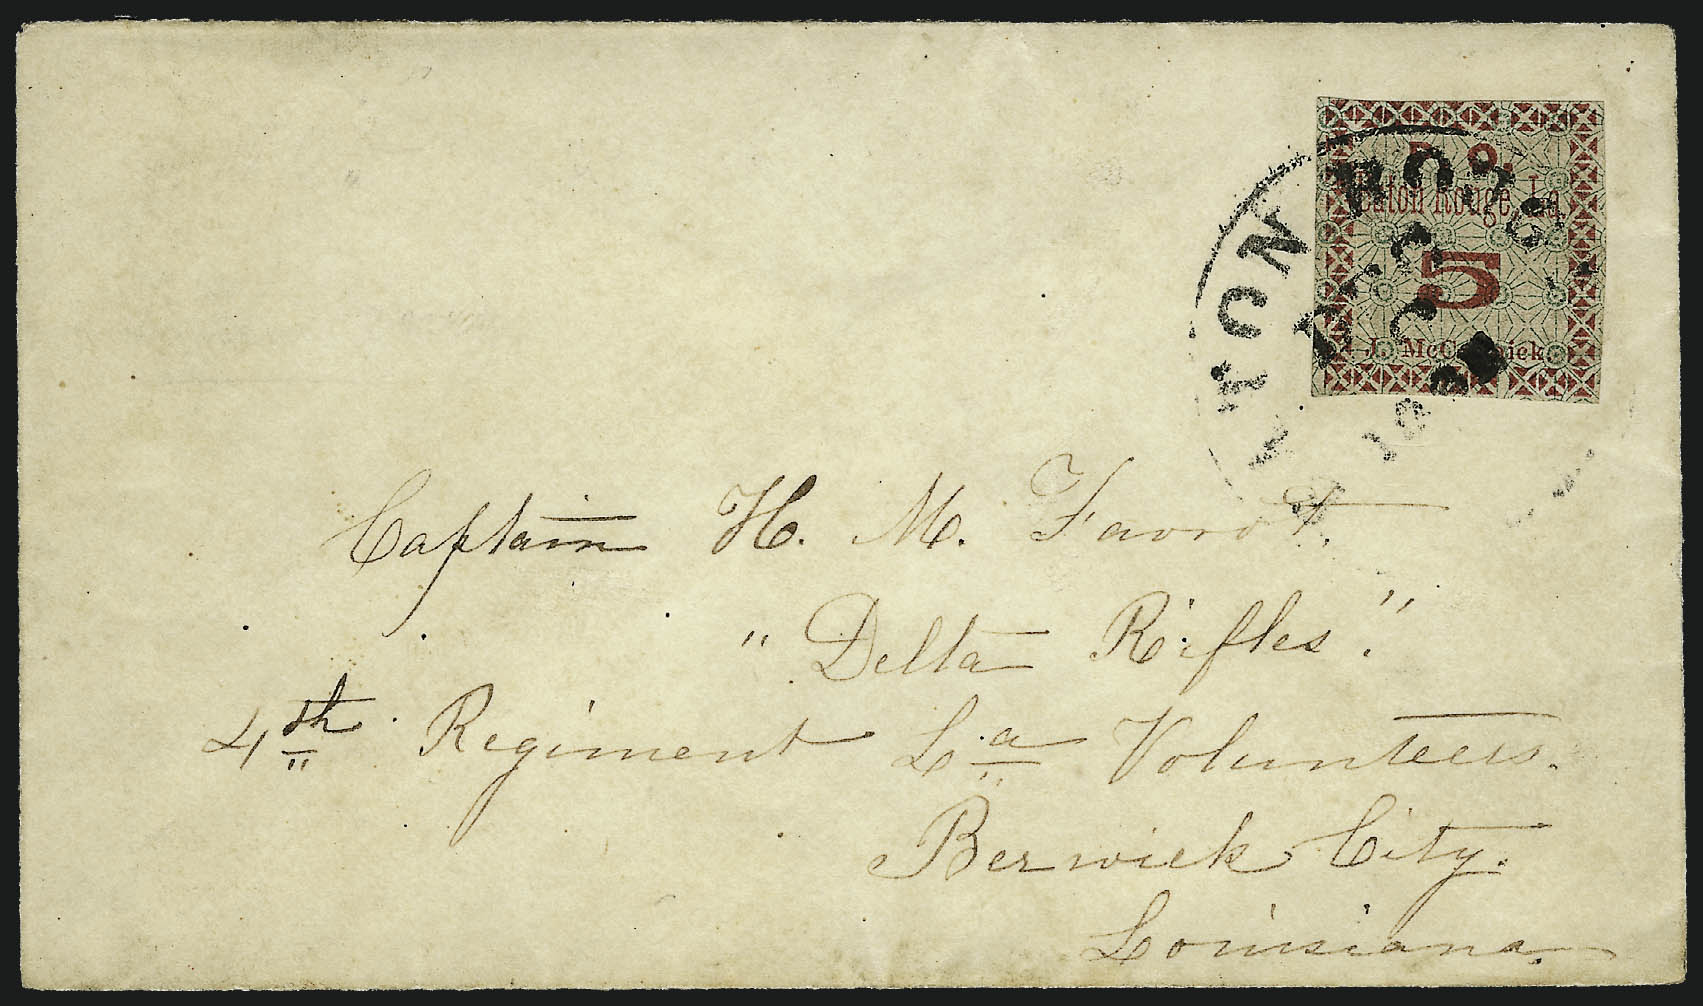 P. O.
Baton Rouge, La.
5
J. McCormick.
BATON ROUGE
Captain H. M. Favrot.
"Delta Rifles".
4th Regiment La Volunteers.
Berwick City.
Louisiana.